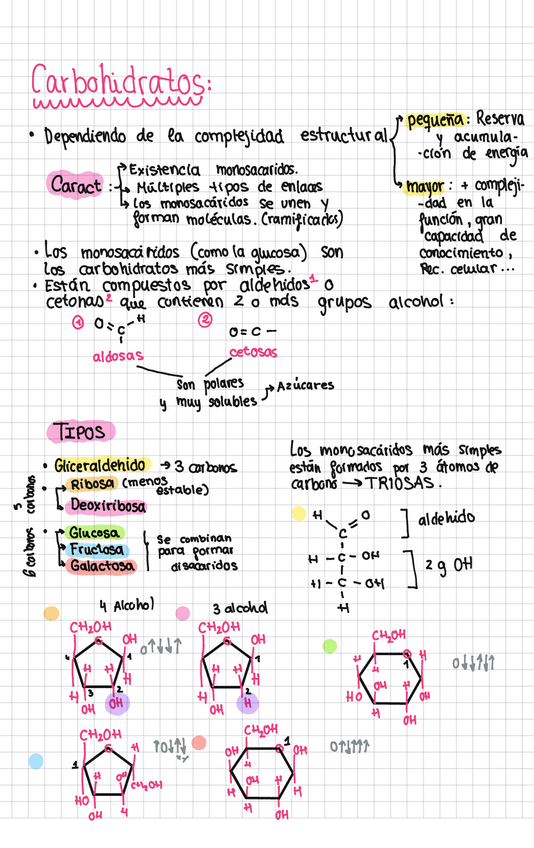 Carbohidratos:
• Dependiendo de la complejidad estructural
pequeña: Reserva
y acumula-
-ción de energía
mayor: + compleji-
-dad en la
función, gran
capacidad de
conocimiento,
Rec. celular...
Caract:
Existencia monosacaridos.
Múltiples tipos de enlaces
los monosacáridos se unen y
forman moléculas. (ramificados)
• Los monosacáridos (como la glucosa) son
los carbohidratos más simples.
• Están compuestos por aldehídos¹ o
cetonas² que contienen 2 o más grupos alcohol:
① O=C-H
aldosas
② O=C-
cetosas
Son polares
y muy solubles → Azúcares
TIPOS
• Gliceraldehido → 3 carbonos
5 carbonos
• Ribosa (menos
estable)
Deoxiribosa
6 carbonos
• Glucosa
Fructosa
Galactosa
Se combinan
para formar
disacaridos
Los monosacáridos más simples
están formados por 3 átomos de
carbono → TRIOSAS.
H O
C
aldehido
H - C - OH
H - C - OH
H
2 g OH
4 Alcohol
CH₂OH
OH
O↑↓↓↑
4 1
H H
H H
3 2
OH OH
3 alcohol
CH₂OH
OH
O↑↓↓↑
1
H H
H H
2
OH H
CH₂OH
H H
1
OH H
HO OH
H OH
O↓↓↑↓↑
CH₂OH
H
1
H OH
HO CH₂OH
OH H
CH₂OH
OH 1 OH
H
OH H
H H
H OH
O↑↓↑↑↑